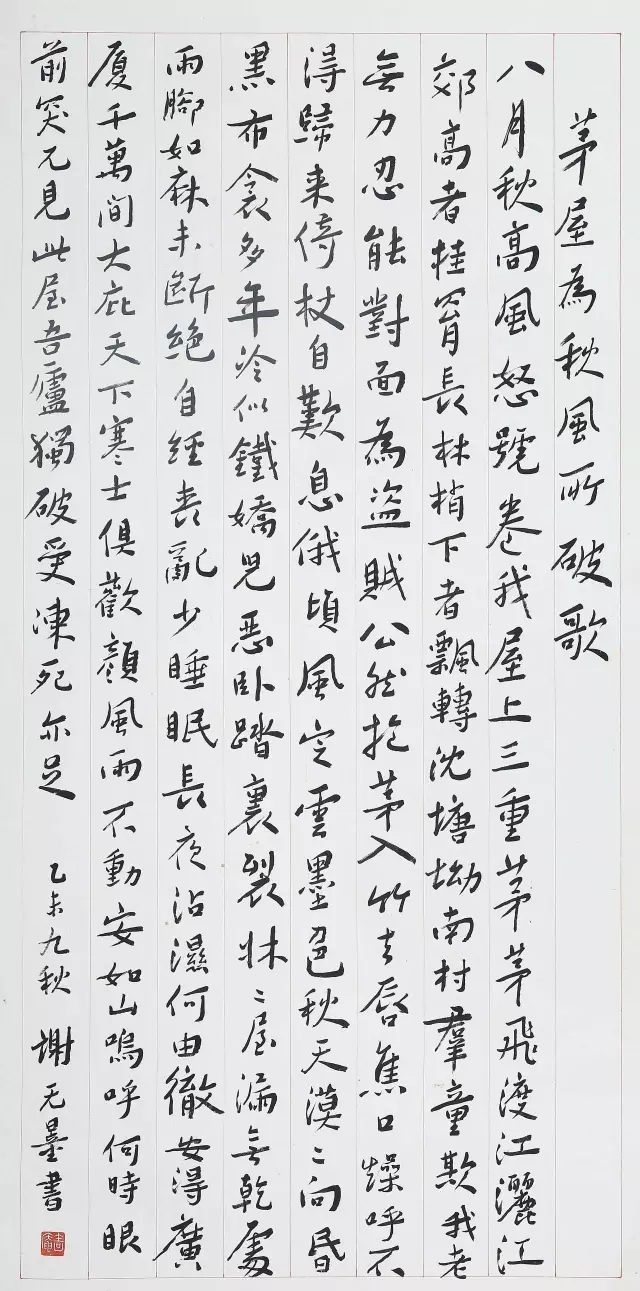 茅屋為秋風所破歌
八月秋高風怒號卷我屋上三重茅茅飛渡江灑江
郊高者挂罥長林梢下者飄轉沈塘坳南村羣童欺我老
無力忍能對面為盜賊公然抱茅入竹去唇焦口燥呼不
得歸来倚杖自歎息俄頃風定雲墨色秋天漠〻向昏
黑布衾多年冷似鐵嬌兒惡卧踏裏裂牀〻屋漏無乾處
雨腳如麻未斷絕自經喪亂少睡眠長夜沾濕何由徹安得廣
厦千萬間大庇天下寒士俱歡顏風雨不動安如山嗚呼何時眼
前突兀見此屋吾廬獨破受凍死亦足
乙未九秋 謝无墨書